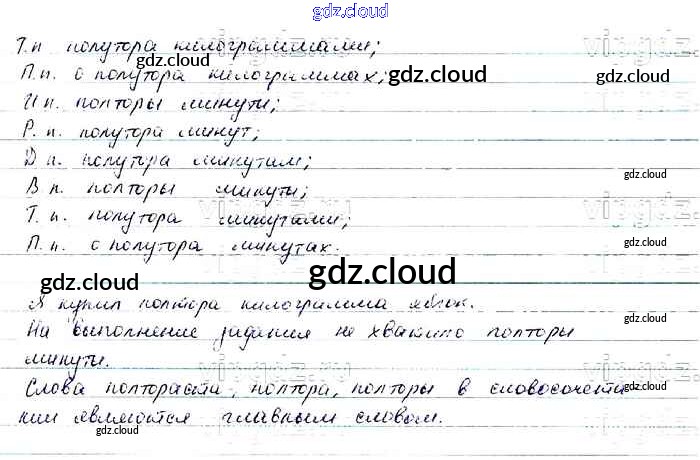 gdz.cloud
Т.п полутора килограммами;
П.п. о полутора килограммах;
gdz.cloud
gdz.cloud
И п. полторы минуты;
Р. п. полутора минут;
Д п. полутора минутам;
gdz.cloud
В п. полторы минуты;
Т. п. полутора минутами;
П. п. о полутора минутах.
gdz.cloud
gdz.cloud
gdz.cloud
Я купил полтора килограмма яблок.
На выполнение задания не хватило полторы
gdz.cloud
минуты.
Слова полтораста, полтора, полторы в словосочета
gdz.cloud
нии являются главным словом.
gdz.cloud